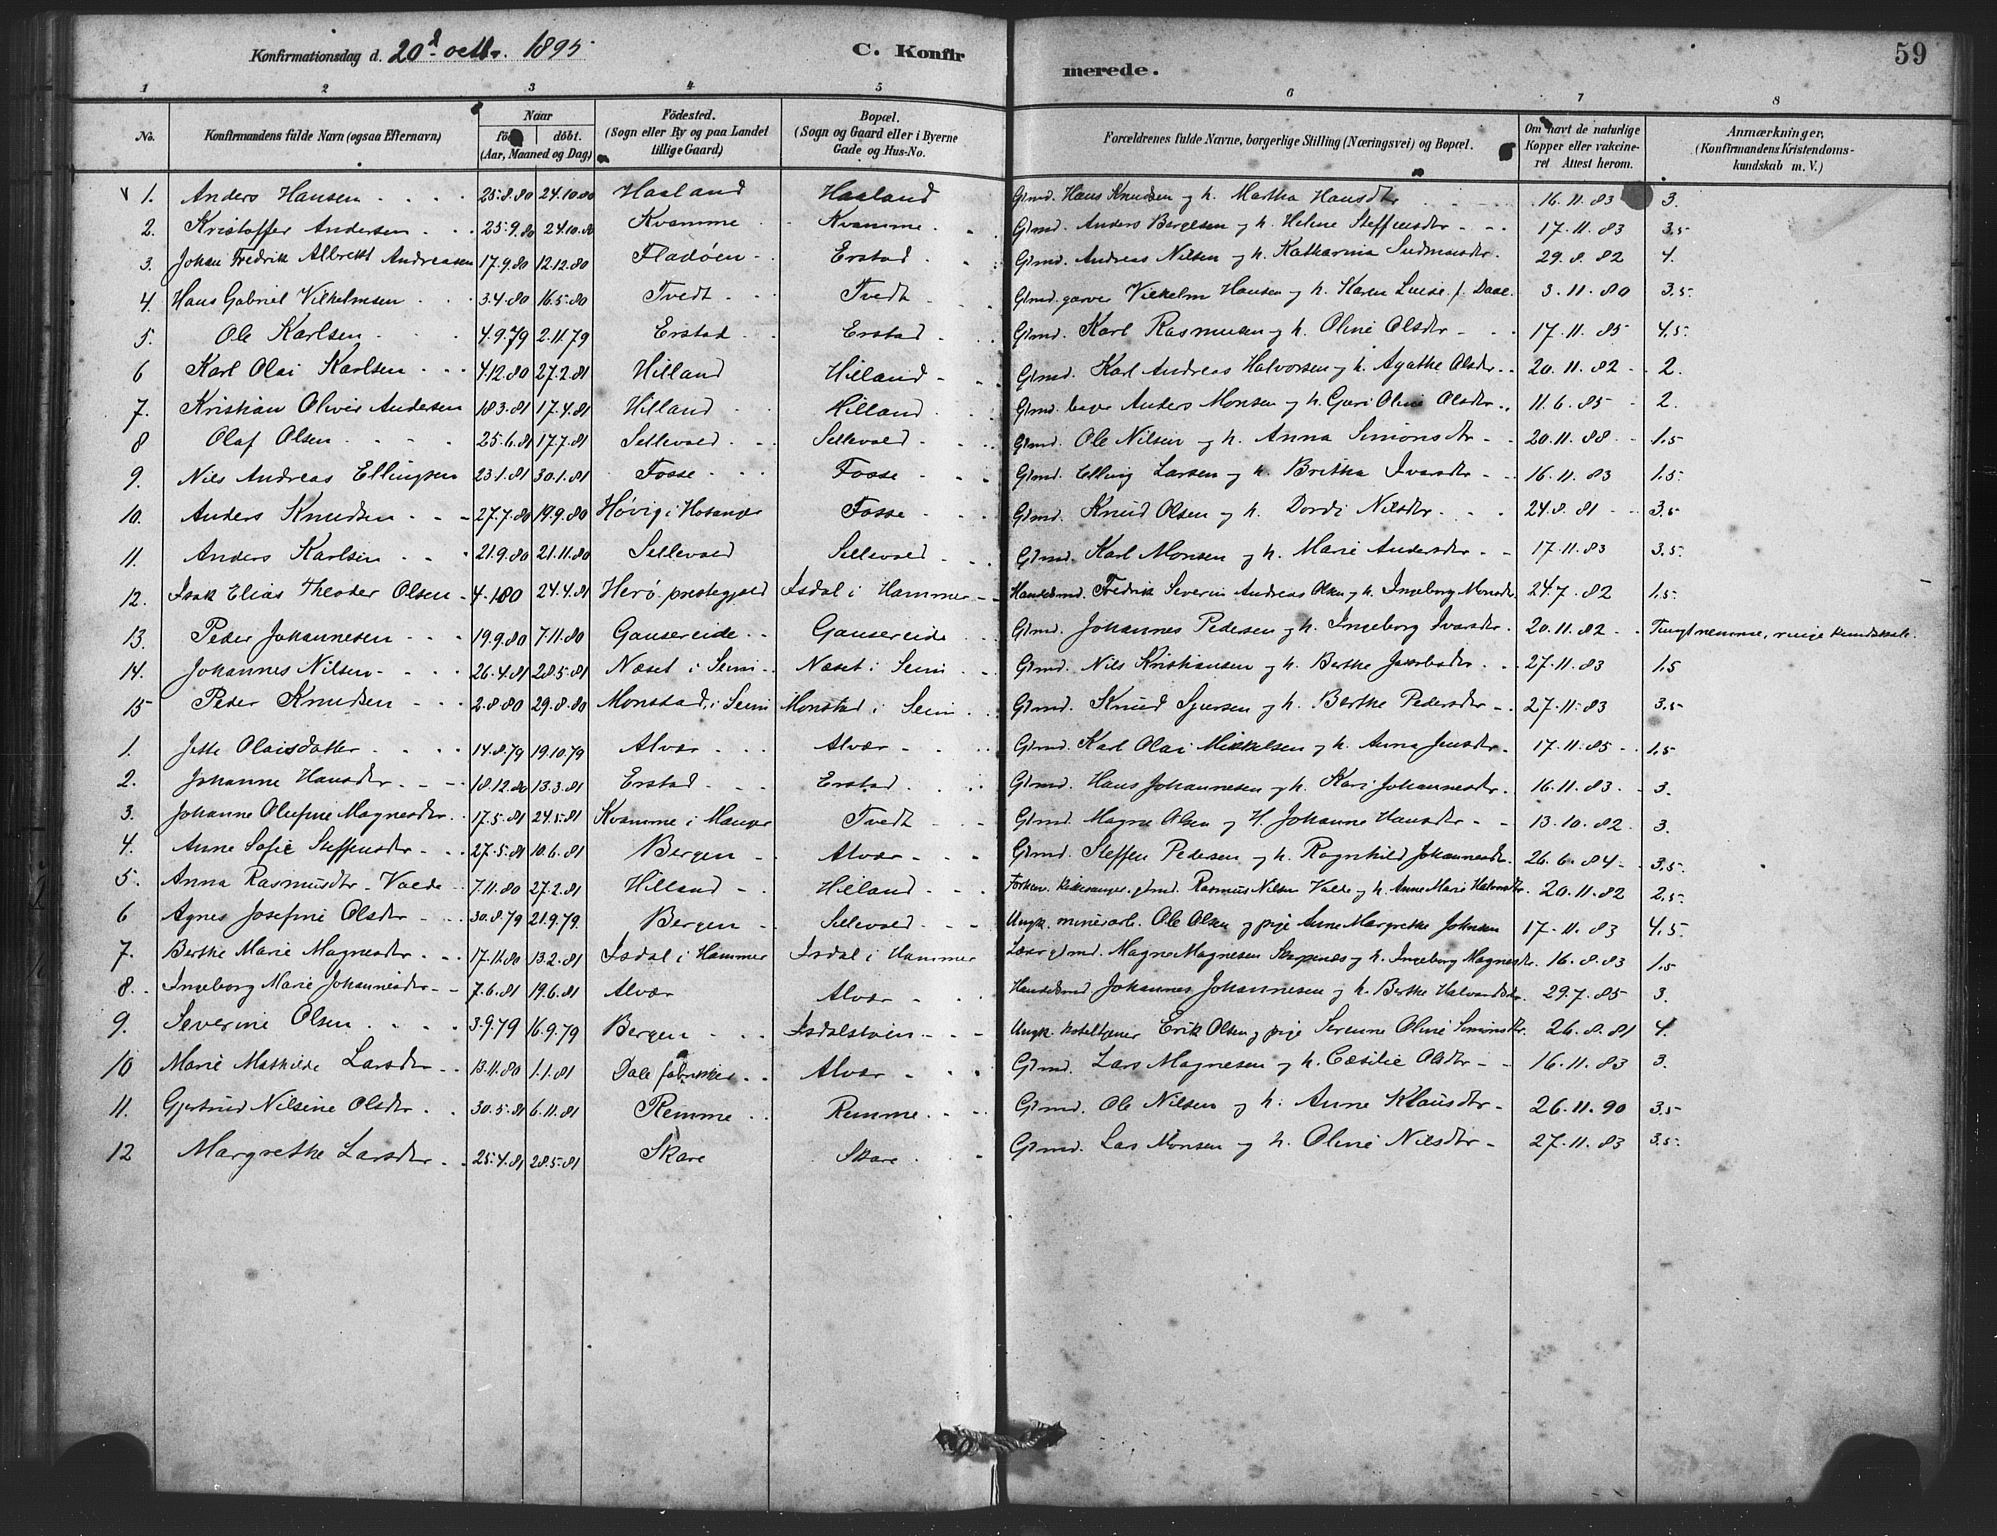 Konfirmationsdag d. 20d octbr. 1895
C. Konfirmerede.
59
1 2 3 4 5 6 7 8
No. Konfirmandens fulde Navn (ogsaa Efternavn) Naar født. døbt. (Aar, Maaned og Dag) Fødested. (Sogn eller By og paa Landet tillige Gaard) Bopæl. (Sogn og Gaard eller i Byerne Gade og Hus-No. Forældrenes fulde Navne, borgerlige Stilling (Næringsvei) og Bopæl. Om havt de naturlige Kopper eller vakcineret Attest herom. Anmærkninger, (Konfirmandens Kristendomskundskab m. V.)
1. Anders Hansen 25.8.80 24.10.80 Haaland Haaland Gbmd. Hans Knudsen og h. Martha Hansdtr 16.11.83 3.
2. Kristoffer Andersen 25.9.80 24.10.80 Kvamme Kvamme Gbmd. Anders Børgesen og h. Helene Steffensdtr 17.11.83 3.5
3. Johan Fredrik Albrekt Andreasen 17.9.80 12.12.80 Fladøen Erstad Gbmd. Andreas Nilsen og h. Katharina 29.8.82 4.
4. Hans Gabriel Vilhelmsen 3.4.80 16.5.80 Tvedt Tvedt Gbmd. garver Vilhelm Hansen og h. Karen Luise f. Daae 3.11.80 3.5
5. Ole Karlsen 4.9.79 2.11.79 Erstad Erstad Gbmd. Karl Rasmusen og h. Oline Olsdtr 17.11.85 4.5
6 Karl Olai Karlsen 4.12.80 27.2.81 Hilland Hilland Gbmd. Karl Andreas Halvorsen og h. Agathe Olsdtr 20.11.82 2.
7. Kristian Oliver Andersen 18.3.81 17.4.81 Hilland Hilland Gbmd. Anders Monsen og h. Guri Oline Olsdtr 11.6.85 2.
8 Olaf Olsen 25.6.81 17.7.81 Sellevold Sellevold Gbmd. Ole Nilsen og h. Anna Simonsdtr 20.11.88 1.5
9. Nils Andreas Ellingsen 23.1.81 30.1.81 Fosse Fosse Gbmd. Elling Larsen og h. Britha Ivarsdtr 16.11.83 1.5
10. Anders Knudsen 27.7.80 19.9.80 Høvig i Hosanger Fosse Gbmd. Knud Olsen og h. Dordi Nilsdtr 24.8.81 3.5
11. Anders Karlsen 21.9.80 21.11.80 Sellevold Sellevold Gbmd. Karl Monsen og h. Marie Andersdtr 17.11.83 3.5
12. Isak Elias Theodor Olsen 24.4.81 Herø prestegjeld Isdal i Hammer Handelsmd. Fredrik Severin Andreas Olsen og h. Ingeborg Monsdtr 24.7.82 1.5
13. Peder Johannesen 19.9.80 7.11.80 Gausereide Gausereide Gbmd. Johannes Pedersen og h. Ingeborg Ivarsdtr 20.11.82 Tungt nemme, ringe kundskab.
14. Johannes Nilsen 26.4.81 28.5.81 Næset i Seim Næset i Seim Gbmd. Nils Kristiansen og h. Berthe Jakobsdtr 27.11.83 1.5
15 Peder Knudsen 2.8.80 29.8.80 Monstad i Seim Monstad i Seim Gbmd. Knud Sjursen og h. Berthe Pedersdtr 27.11.83 3.5
1. Jette Olaisdatter 14.8.79 19.10.79 Alvær Alvær Gbmd. Karl Olai Mikkelsen og h. Anna Jensdtr 17.11.85 1.5
2. Johanne Hansdtr 18.12.80 13.3.81 Erstad Erstad Gbmd. Hans Johannesen og h. Kari Johannesdtr 16.11.83 3.
3. Johanne Olufine Magnesdtr 17.5.81 24.5.81 Kvamme i Manger Tvedt Gbmd. Magne Olsen og H. Johanne Hansdtr 13.10.82 3.
4. Anne Sofie Steffensdtr 27.5.81 10.6.81 Bergen Alvær Gbmd. Steffen Pedersen og h. Ragnhild Johannesdtr 26.6.84 3.5
5. Anna Rasmusdtr Valde 7.11.80 27.2.81 Hilland Hilland Forhen. kirkesanger, gbmd. Rasmus Nilsen Valde og h. Anne Marie Halvorsdtr 20.11.82 2.5
6 Agnes Josefine Olsdtr 30.8.79 21.9.79 Bergen Sellevold Ungk. minearb. Ole Olsen og pige Anne Margrethe Johnsen 17.11.83 4.5
7. Berthe Marie Magnesdtr 17.11.80 13.2.81 Isdal i Hammer Isdal i Hammer Lærer gbmd. Magne Magnesen og h. Ingeborg Magnesdtr 16.8.83 1.5
8. Ingeborg Marie Johannesdtr 7.6.81 19.6.81 Alvær Alvær Handelsmd Johannes Johannesen og h. Berthe Halvardsdtr 29.7.85 3.
9. Severine Olsen 3.9.79 16.9.79 Bergen Isdalstøen Ungk. hoteltjener Erik Olsen og pige Serenne Oline Simonsdtr 26.8.81 4.
10 Marie Mathilde Larsdtr 13.11.80 1.1.81 Dale fabrikker Alvær Gbmd. Lars Magnesen og h. Cæsilie Olsdtr 16.11.83 3.
11. Gjertrud Nilsine Olsdtr 30.5.81 6.11.81 Remme Remme Gbmd. Ole Nilsen og h. Anne Klausdtr 26.11.90 3.5
12 Margrethe Larsdtr 25.4.81 28.5.81 Skare Skare Gbmd. Lars Monsen og h. Oline Nilsdtr 27.11.83 3.5